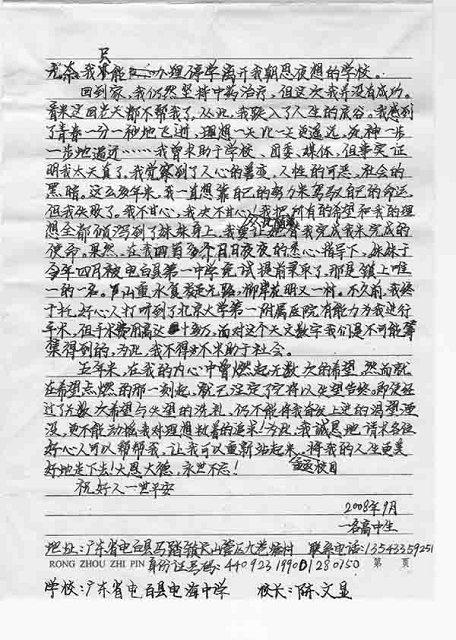 无奈,我只能办理停学离开我朝思夜想的学校。
回到家,我仍然坚持中药治疗,但这次我并没有成功。
看来这回老天都不帮我了,从此,我跌入了人生的底谷。我感到
了青春一分一秒地飞逝,理想一天比一天更遥远,死神一步
一步地逼近……我曾求助于学校、团委、媒体,但事实证
明我太天真了,我觉察到了人心的善变,人性的可恶,社会的
黑暗。这么多年来,我一直想靠自己的努力来驾驭自己的命运,
但我失败了。我不甘心,我决不甘心!我把所有的希望和我的理
想全部倾泻到了妹妹身上,我要让她替我完成我未完成的
使命。果然,在我两百多个日日夜夜的悉心指导下,妹妹于
今年四月被电白县第一中学免试提前录取了,那是镇上唯
一的一名。"山重水复疑无路,柳岸花明又一村。不久前,我终
于托好心人打听到了北京大学第一附属医院有能力为我进行
手术,但手术费用高达十多万,面对这个天文数字我们是不可能筹
集得到的,为此,我不得不求助于社会。
五年来,在我的内心中曾燃起无数次的希望,然而就
在希望点燃的那一刻起,就已注定了它将以失望告终。即使经
过了无数次希望与失望的洗礼,仍不能将我奋发上进的渴望湮
没,更不能动摇我对理想执着的追求!为此,我诚恳地请求各位
好心人可以帮帮我,让我可以重新站起来,将我的人生更美
好地走下去!大恩大德,永世不忘!
祝好人一世平安
2008年9月
一名高中生
地址:广东省电白县马踏镇 联系电话:13543359251
RONG ZHOU ZHI PIN 身份证号码:440923199001280150 第 页
学校:广东省电白县电海中学 校长:陈文显